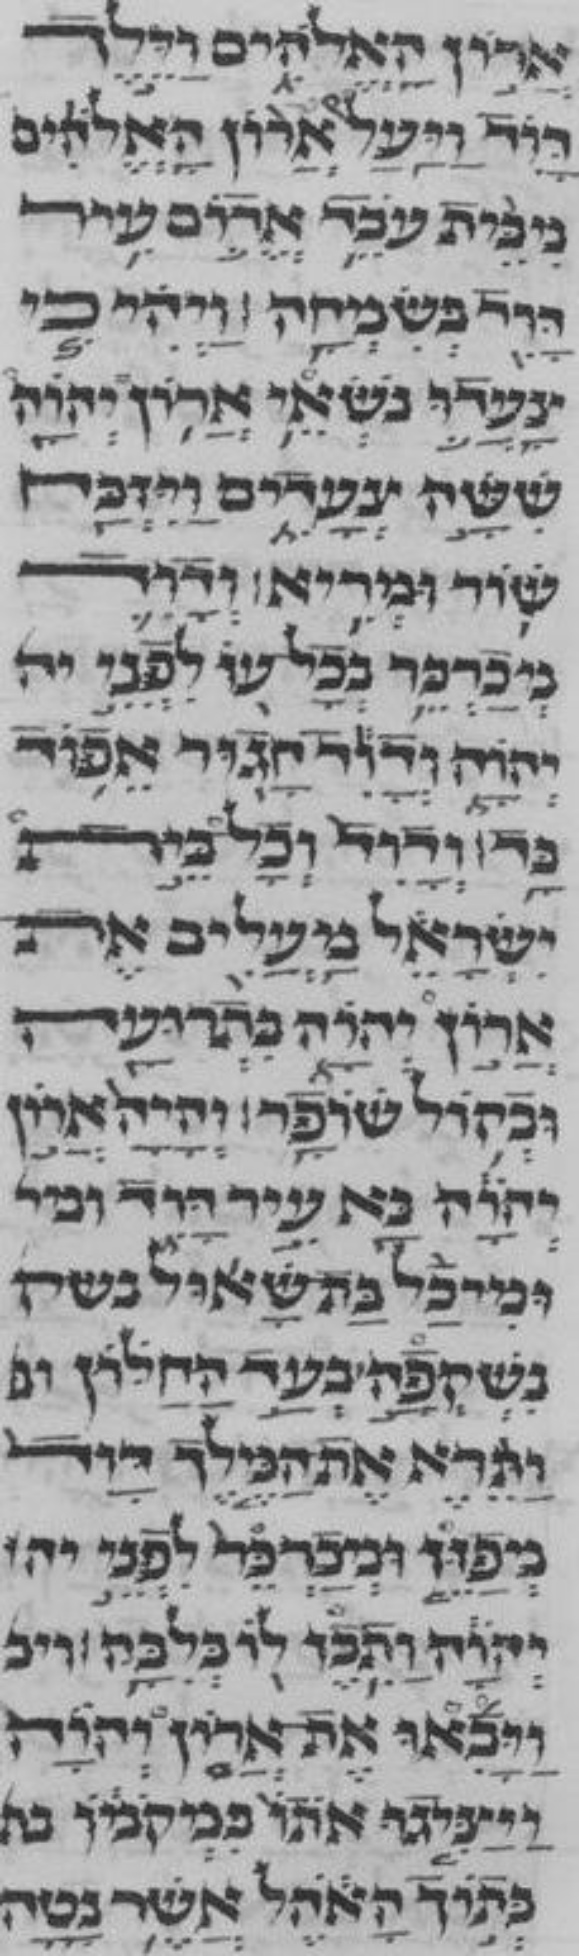 אֲרוֹן הָאֱלֹהִים וַיֵּלֶךְ
דָּוִד וַיַּעַל אֲרוֹן הָאֱלֹהִים
מִבֵּית עֹבֵד אֱדוֹם עִיר
דָּוִד בְּשִׂמְחָה ׃ וַיְהִי כִּי
צָעֲדוּ נֹשְׂאֵי אֲרוֹן יְהוָה
שִׁשָּׁה צְעָדִים וַיִּזְבַּח
שׁוֹר וּמְרִיא ׃ וְדָוִד
מְכַרְכֵּר בְּכָל עֹז לִפְנֵי יה
יְהוָה וְדָוִד חָגוּר אֵפוֹד
בָּד ׃ וְדָוִד וְכָל בֵּית
יִשְׂרָאֵל מַעֲלִים אֶת
אֲרוֹן יְהוָה בִּתְרוּעָה
וּבְקוֹל שׁוֹפָר ׃ וְהָיָה אֲרוֹן
יְהוָה בָּא עִיר דָּוִד ומי
וּמִיכַל בַּת שָׁאוּל נשק
נִשְׁקְפָה בְּעַד הַחַלּוֹן ות
וַתֵּרֶא אֶת הַמֶּלֶךְ דָּוִד
מְפַזֵּז וּמְכַרְכֵּר לִפְנֵי יהו
יְהוָה וַתִּבֶז לוֹ בְּלִבָּהּ ׃ ויב
וַיָּבִאוּ אֶת אֲרוֹן יְהוָה
וַיַּצִּגוּ אֹתוֹ בִּמְקֹמוֹ בת
בְּתוֹךְ הָאֹהֶל אֲשֶׁר נָטָה